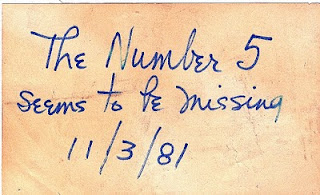 The Number 5
seems to be missing
11/3/81